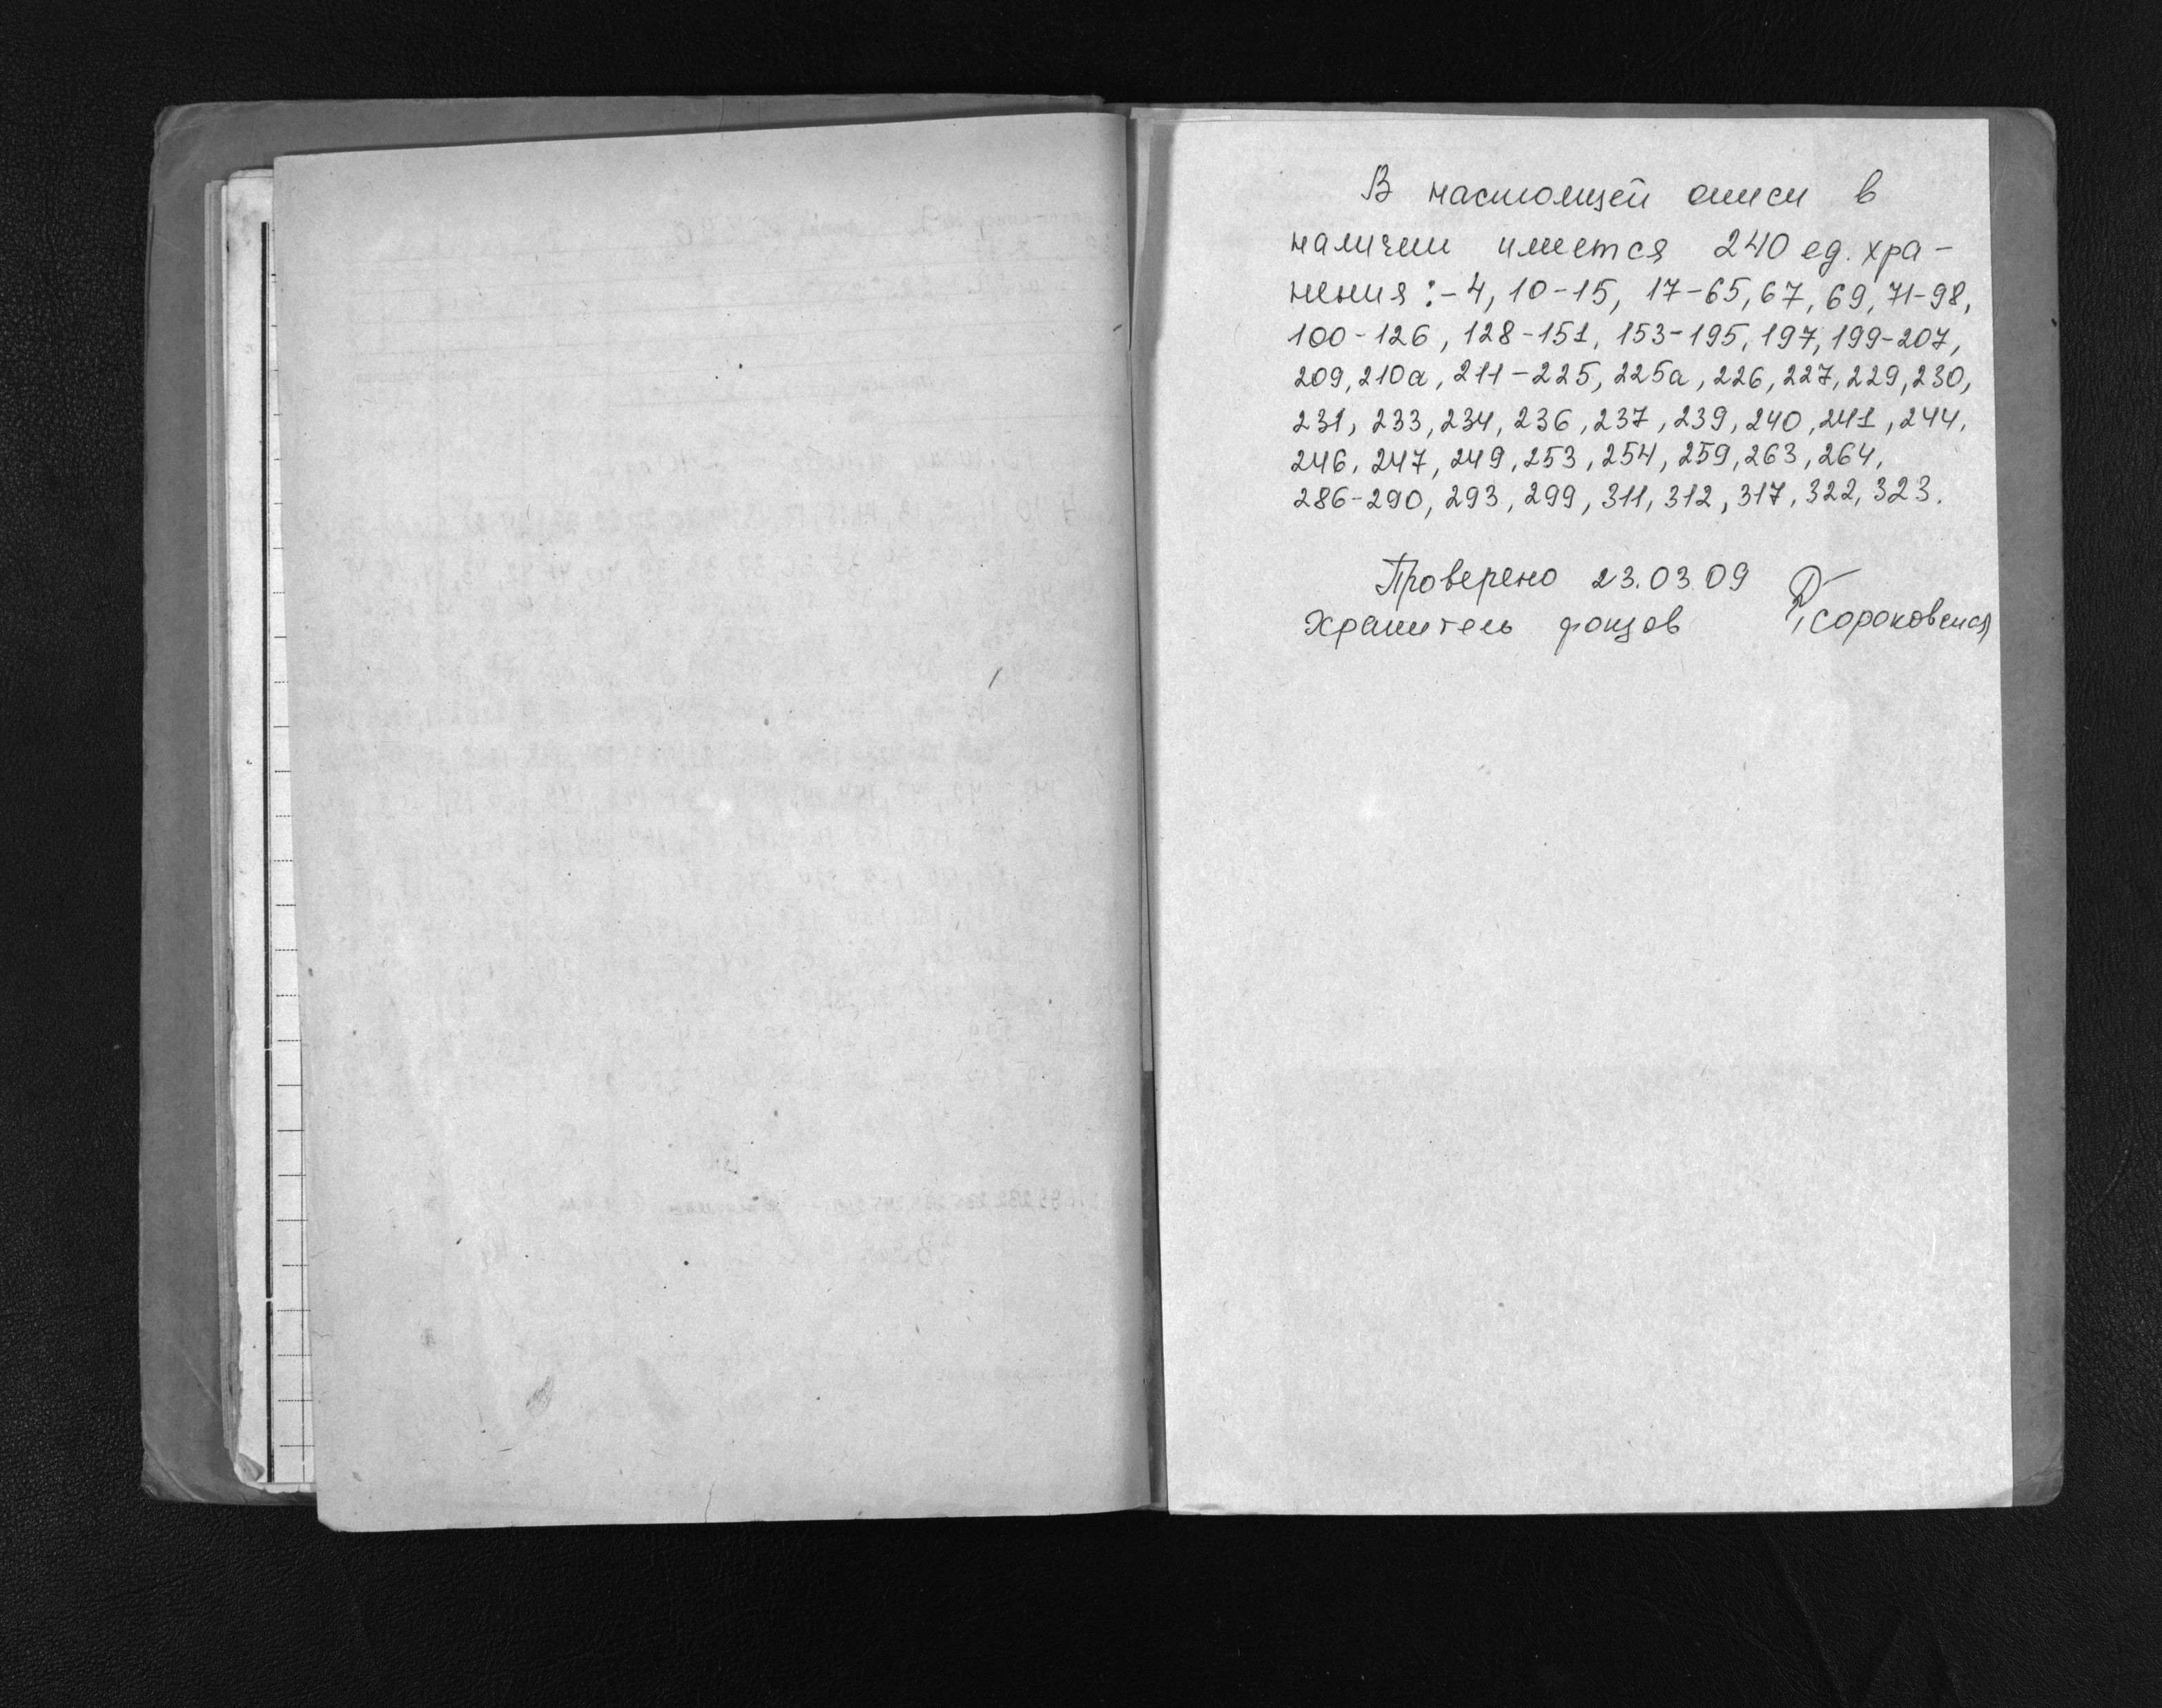 В настоящей описи в
наличии имеется 240 ед. хра-
нения :- 4, 10-15, 17-65, 67, 69, 71-98,
100-126, 128-151, 153-195, 197, 199-207,
209, 210а, 211-225, 225а, 226, 227, 229, 230,
231, 233, 234, 236, 237, 239, 240, 241, 244,
246, 247, 249, 253, 254, 259, 263, 264,
286-290, 293, 299, 311, 312, 317, 322, 323.
Проверено 23.03.09
Хранитель фондов Сороковская